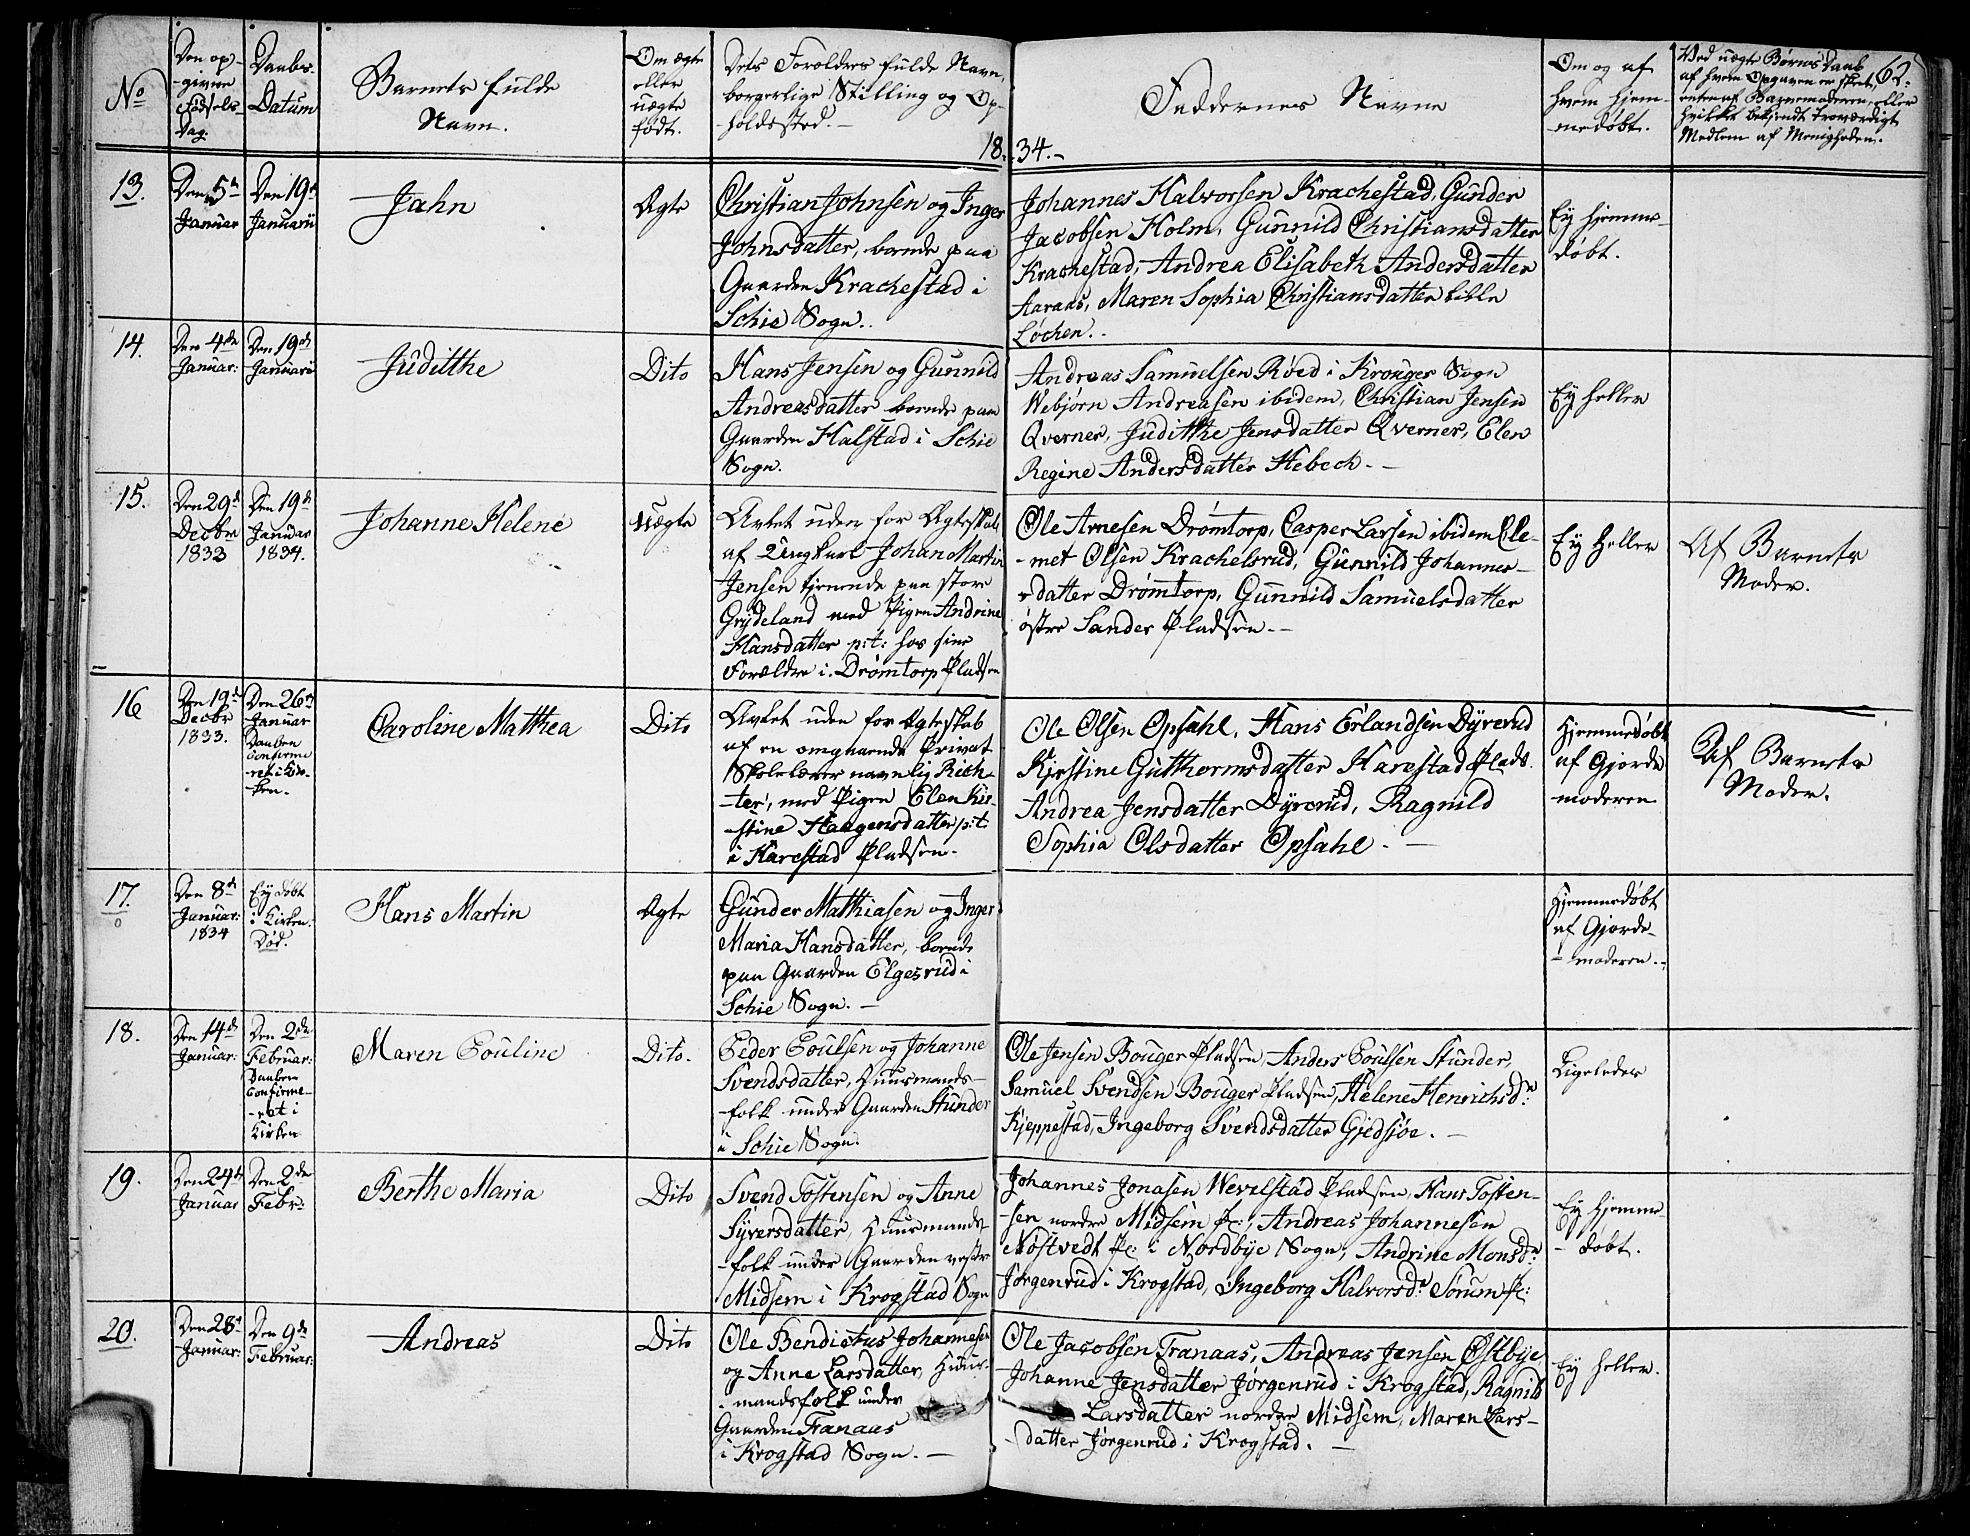 62.
No
Den op-
-given
Fødsels-
Dag.
Daabs-
Datum
Barnets fulde
Navn.
Om ægte
eller
uægte
født.
Dets Forældres fulde Navn,
borgerlige Stilling og Op-
-holdssted.
Faddernes Navne
Om og af
hvem hjem-
-medøbt.
Ved uægte Børns Daab
af hvem Opgaven er skeet,
enten af Barnemoderen, eller
hvilket bekjendt troværdigt
Medlem af Menigheden.
18 34.
13.
Den 5te
Januar
Den 19de
Januarii
Jahn
Ægte
Christian Johnsen og Inger
Johnsdatter, boende paa
Gaarden Krachestad i
Schie Sogn.
Johannes Halvorsen Krachestad, Gunder
Jacobsen Holm, Gunnild Christiansdatter
Krachestad, Andrea Elisabeth Andersdatter
Aaraas, Maren Sophia Christiansdatter Lille
Løchen.
Ey hjemme-
døbt.
14.
Den 4de
Januar:
Den 19de
Januarii
Juditthe
Dito
Hans Jensen og Gunnild
Andreasdatter boende paa
Gaarden Halstad i Schie
Sogn.
Andreas Samuelsen Røed i Krouger Sogn
Webjørn Andreasen ibidem, Christian Jensen
Qverner, Juditthe Jensdatter Qverner, Elen
Regine Andersdatter Hebech.
Ey heller
15.
Den 29de
Decbr
1833
Den 19de
Januar
1834.
Johanne Helene
Uægte
Avlet uden for Ægteskab
af Ungkarl Johan Martin
Jensen tjenende paa store
Grydeland med Pigen Andrine
Hansdatter p:t: hos sine
Forældre i Drømtorp Pladsen
Ole Arnesen Drømtorp, Casper Larsen ibidem Cle-
-met Olsen Krachelsrud, Gunnild Johannes-
-datter Drømtorp, Gunnild Samuelsdatter
østre Sander Pladsen.
Ey heller
Af Barnets
Moder.
16
Den 19de
Decbr
1833.
Den 26de
Januar
Daaben
Confirme
-ret i Kir-
ken.
Caroline Matthea
Dito
Avlet uden for Ægteskab
af en omgaaende Privat
Skolelærer navnlig Rich-
-ter, med Pigen Elen Kir-
-stine Haagensdatter p:t.
i Harestad Pladsen.
Ole Olsen Opsahl, Hans Erlandsen Dyrerud
Kjerstine Gutthormsdatter Harestad Plads.
Andrea Jensdatter Dyrerud, Ragnild
Sophia Olsdatter Opsahl.
Hjemmedøbt
af Gjorde
moderen
Af Barnets
Moder.
17.
Den 8de
Januar:
1834
Ey døbt
i Kirken.
Død.
Hans Martin
Ægte
Gunder Mathiasen og Inger
Maria Hansdatter, boende
paa Gaarden Elgesrud i
Schie Sogn.
Hjemmedøbt
af Gjorde-
- moderen.
18.
Den 14de
Januar:
Den 2den
Februar:
Daaben
Confirme-
-ret i
Kirken
Maren Pouline
Dito.
Peder Poulsen og Johanne
Svendsdatter, Huusmands-
-folk under Gaarden Stunder
i Schie Sogn.
Ole Jensen Bouger Pladsen, Anders Poulsen Stunder,
Samuel Svendsen Bouger Pladsen, Helene Henrichsdr
Kjeppestad, Ingeborg Svendsdatter Gjedsjøe.
Ligeledes
19.
Den 24de
Januar
Den 2den
Febr:
Berthe Maria
Dito
Svend Tostensen og Anne
Syversdatter, Huusmands-
-folk under Gaarden vestre
Midsem i Krogstad Sogn
Johannes Jonasen Wevelstad Pladsen, Hans Tosten-
-sen nordre Midsem Pl:, Andreas Johannesen
Nøstvedt Pl: i Nordbye Sogn, Andrine Monsdr
Jørgenrud i Krogstad, Ingeborg Halvorsdr Sørum Pl:
Ey hjemme
- døbt.
20.
Den 28de
Januar:
Den 9de
Februar:
Andreas
Dito
Ole Bendictus Johannesen
og Anne Larsdatter, Huus-
- mandsfolk under
Gaarden Tranaas
i Krogstad Sogn.
Ole Jacobsen Tranaas, Andreas Jensen Østbye
Johanne Jensdatter Jørgenrud i Krogstad, Ragnild
Larsdatter nordre Midsem, Maren Lars-
-datter Jørgenrud i Krogstad.
Ey heller.